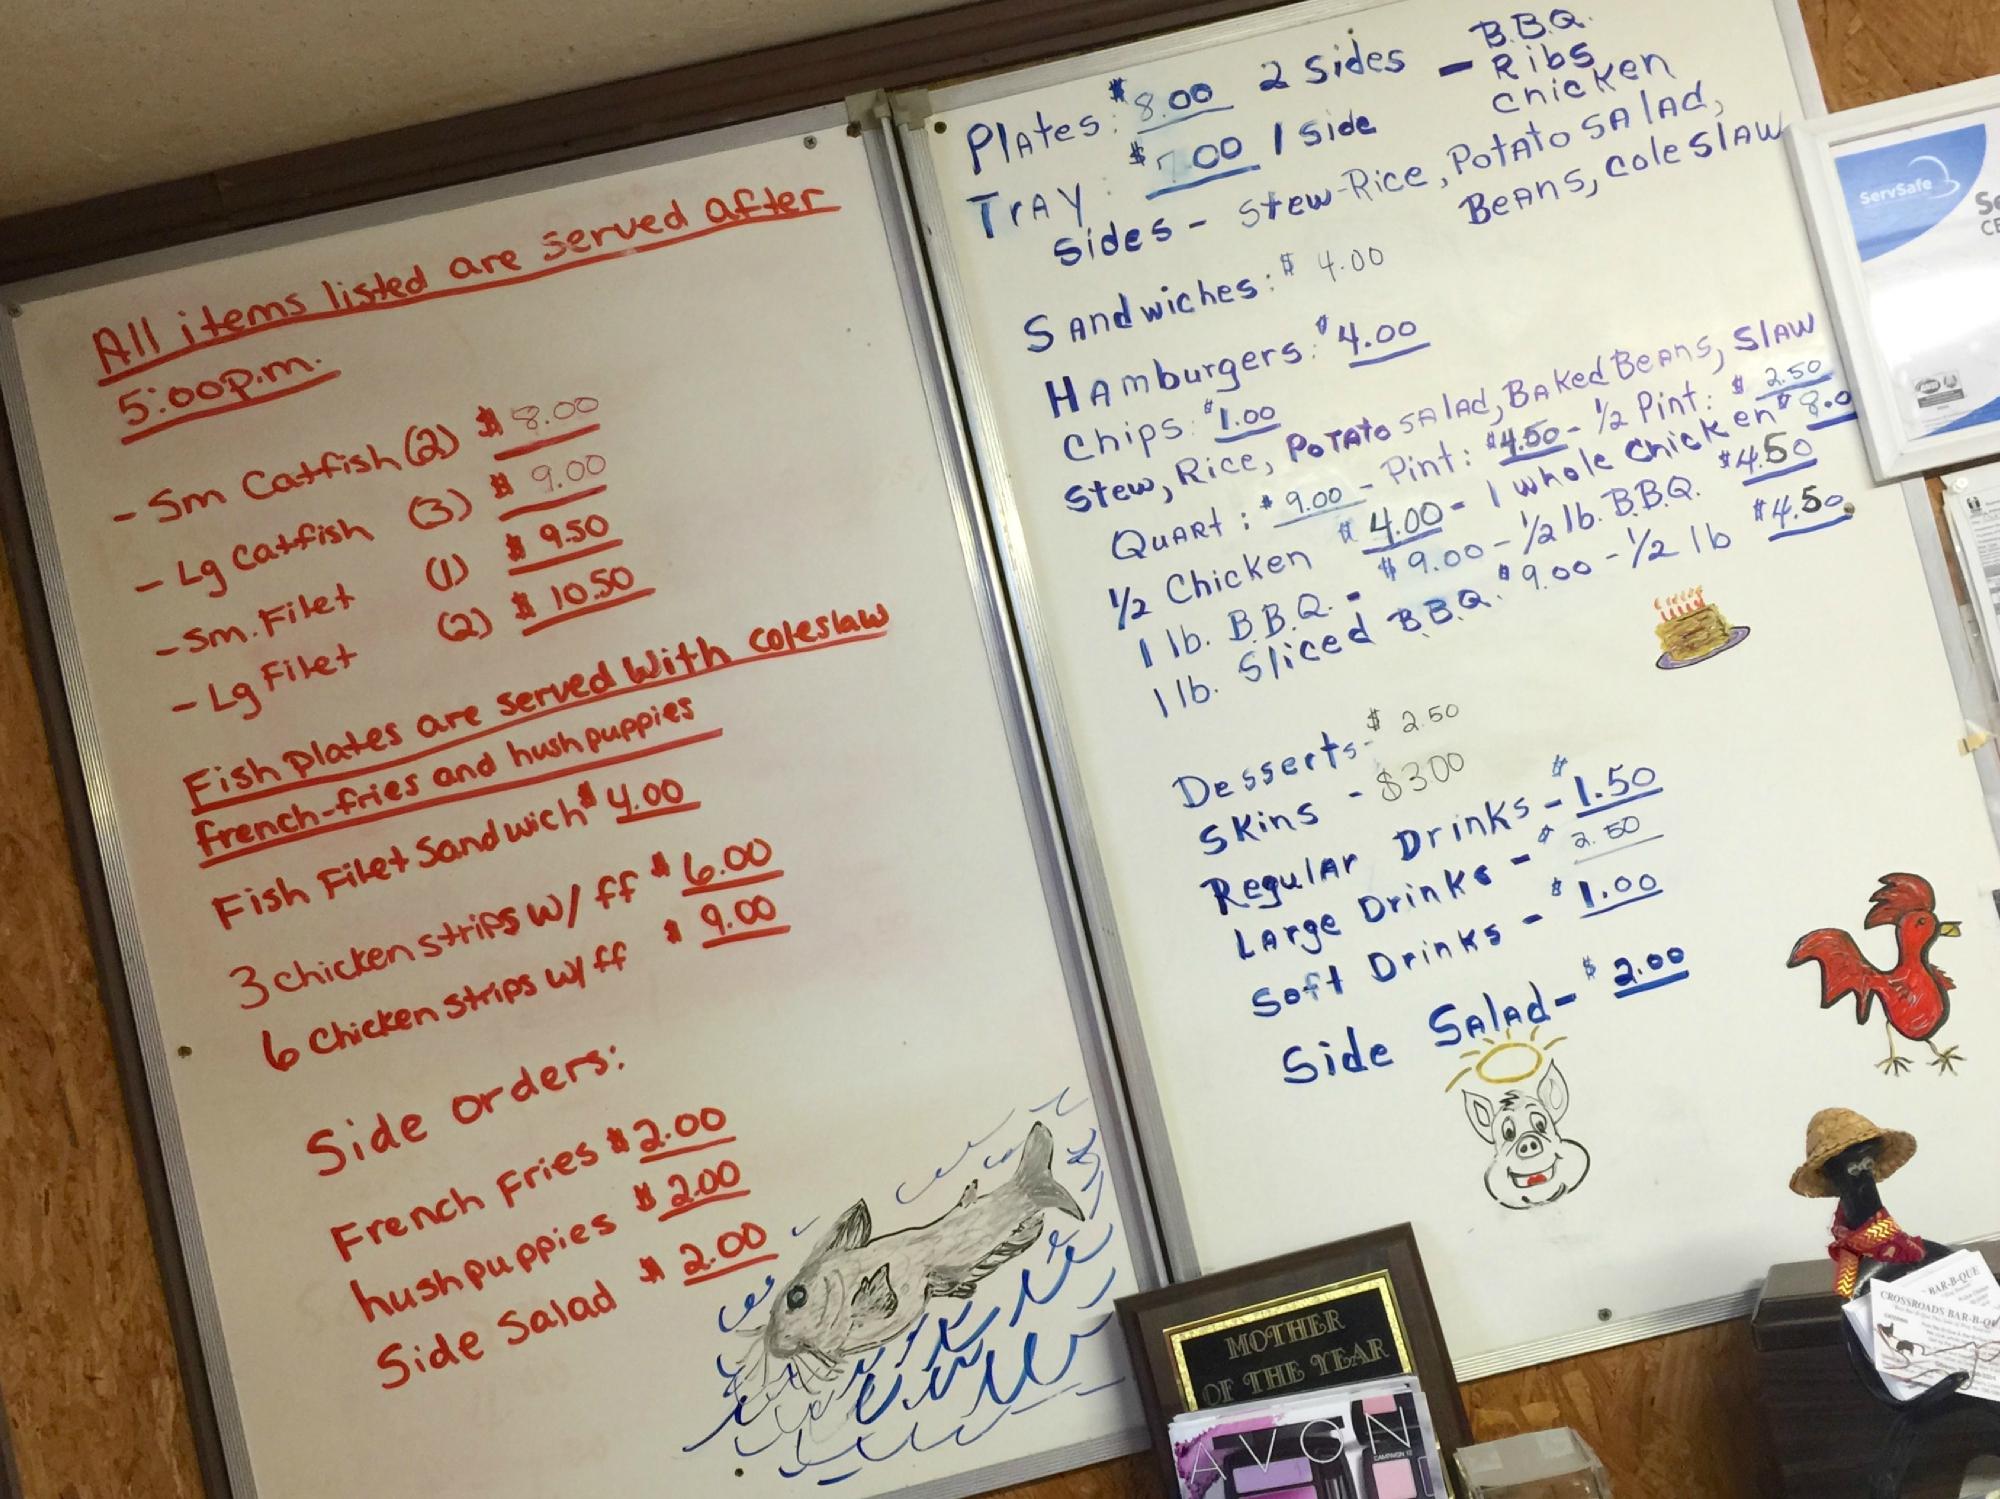 All items listed are served after
5:00p.m.
- Sm Catfish (2) $ 8.00
- Lg Catfish (3) $ 9.00
- Sm. Filet (1) $ 9.50
- Lg Filet (2) $ 10.50
Fish Plates are served With coleslaw
french-fries and hushpuppies
Fish Filet Sandwich $ 4.00
3 chicken strips w/ ff $ 6.00
6 Chicken strips w/ ff $ 9.00
Side orders:
French Fries $ 2.00
hushpuppies $ 2.00
Side Salad $ 2.00
Plates: $8.00 2 Sides - B.B.Q.
Ribs
Chicken
Tray: $7.00 1 Side
Sides - Stew-Rice, Potato Salad,
Beans, Coleslaw
Sandwiches: $ 4.00
Hamburgers: $4.00
Chips: $1.00
Stew, Rice, Potato Salad, Baked Beans, Slaw
Quart: $9.00 - Pint: $4.50 - 1/2 Pint: $ 2.50
1/2 Chicken $4.00 - 1 whole Chicken $8.0
1 lb. B.B.Q. - $9.00 - 1/2 lb. B.B.Q. $4.50
1 lb. Sliced B.B.Q. $9.00 - 1/2 lb $4.50
Desserts - $ 2.50
Skins - $3.00
Regular Drinks - $1.50
Large Drinks - $2.50
Soft Drinks - $1.00
Side Salad - $ 2.00
ServSafe
MOTHER
OF THE YEAR
AVON
BAR-B-QUE
CROSSROADS BAR-B-QU